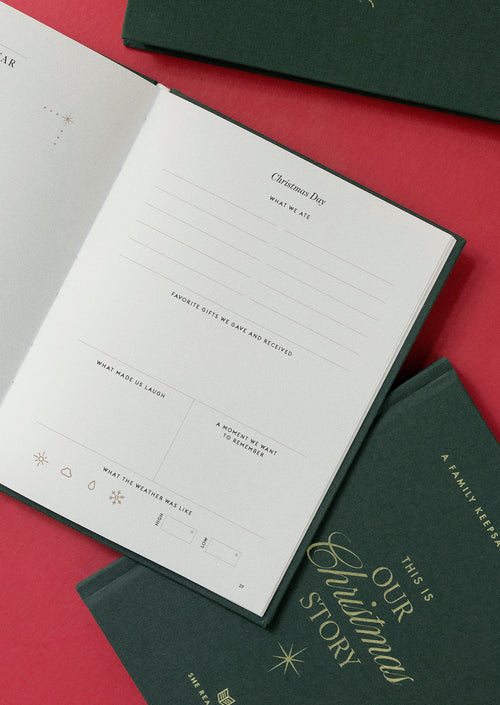 Christmas Day
WHAT WE ATE
FAVORITE GIFTS WE GAVE AND RECEIVED
WHAT MADE US LAUGH
A MOMENT WE WANT
TO REMEMBER
WHAT THE WEATHER WAS LIKE
HIGH
LOW
A FAMILY KEEPSA
THIS IS
OUR
Christmas
STORY
SHE REA